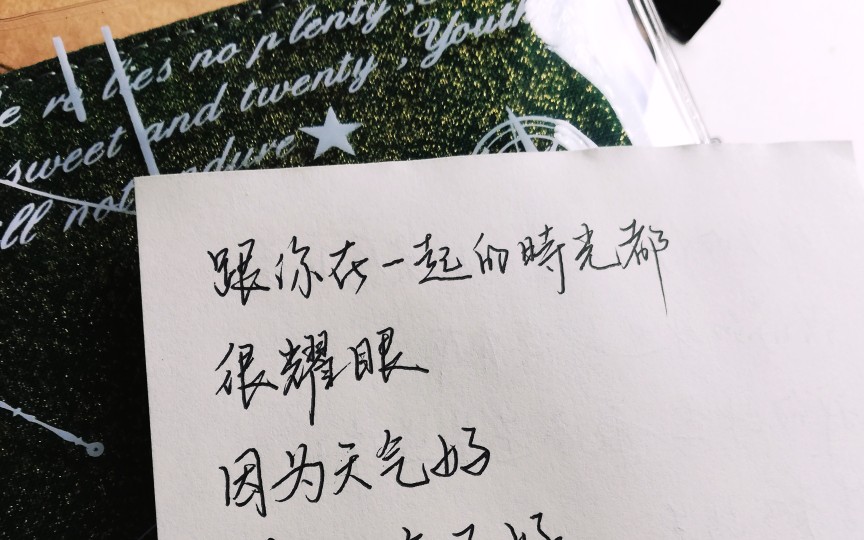 lies no plenty,
sweet and twenty, Youth
ll not endure
跟你在一起的時光都
很耀眼
因为天气好